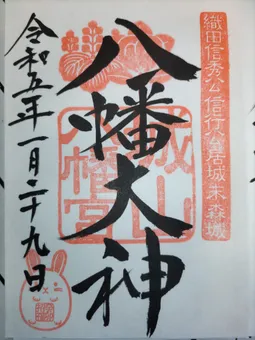 織田信秀公信行公居城末森城
八幡大神
城山
八幡宮
令和五年一月二十九日